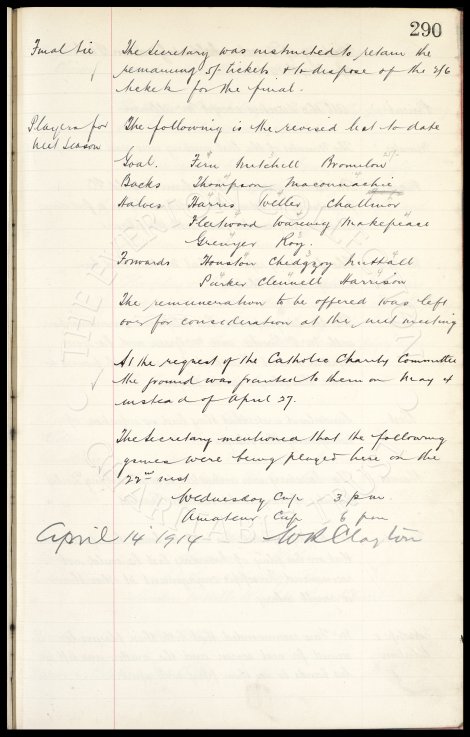 290
Final tie The Secretary was instructed to retain the
remaining 5/- tickets & to dispose of the 2/6
tickets for the final.
Players for The following is the revised list to date
next season
Goal. Fern Mitchell Bromilow
Backs Thompson Maconnachie
Halves Harris Weller Challinor
Fleetwood Wareing Makepeace
Grenyer Roy.
Forwards Houston Chedgzoy Nuttall
Parker Clennell Harrison
The remuneration to be offered was left
over for consideration at the next meeting
At the request of the Catholic Charity Committee
the ground was granted to them on May 4
instead of April 27.
The Secretary mentioned that the following
games were being played here on the
22nd inst
Wednesday Cup 3 pm.
Amateur Cup 6 pm
April 14 1914 W R Clayton